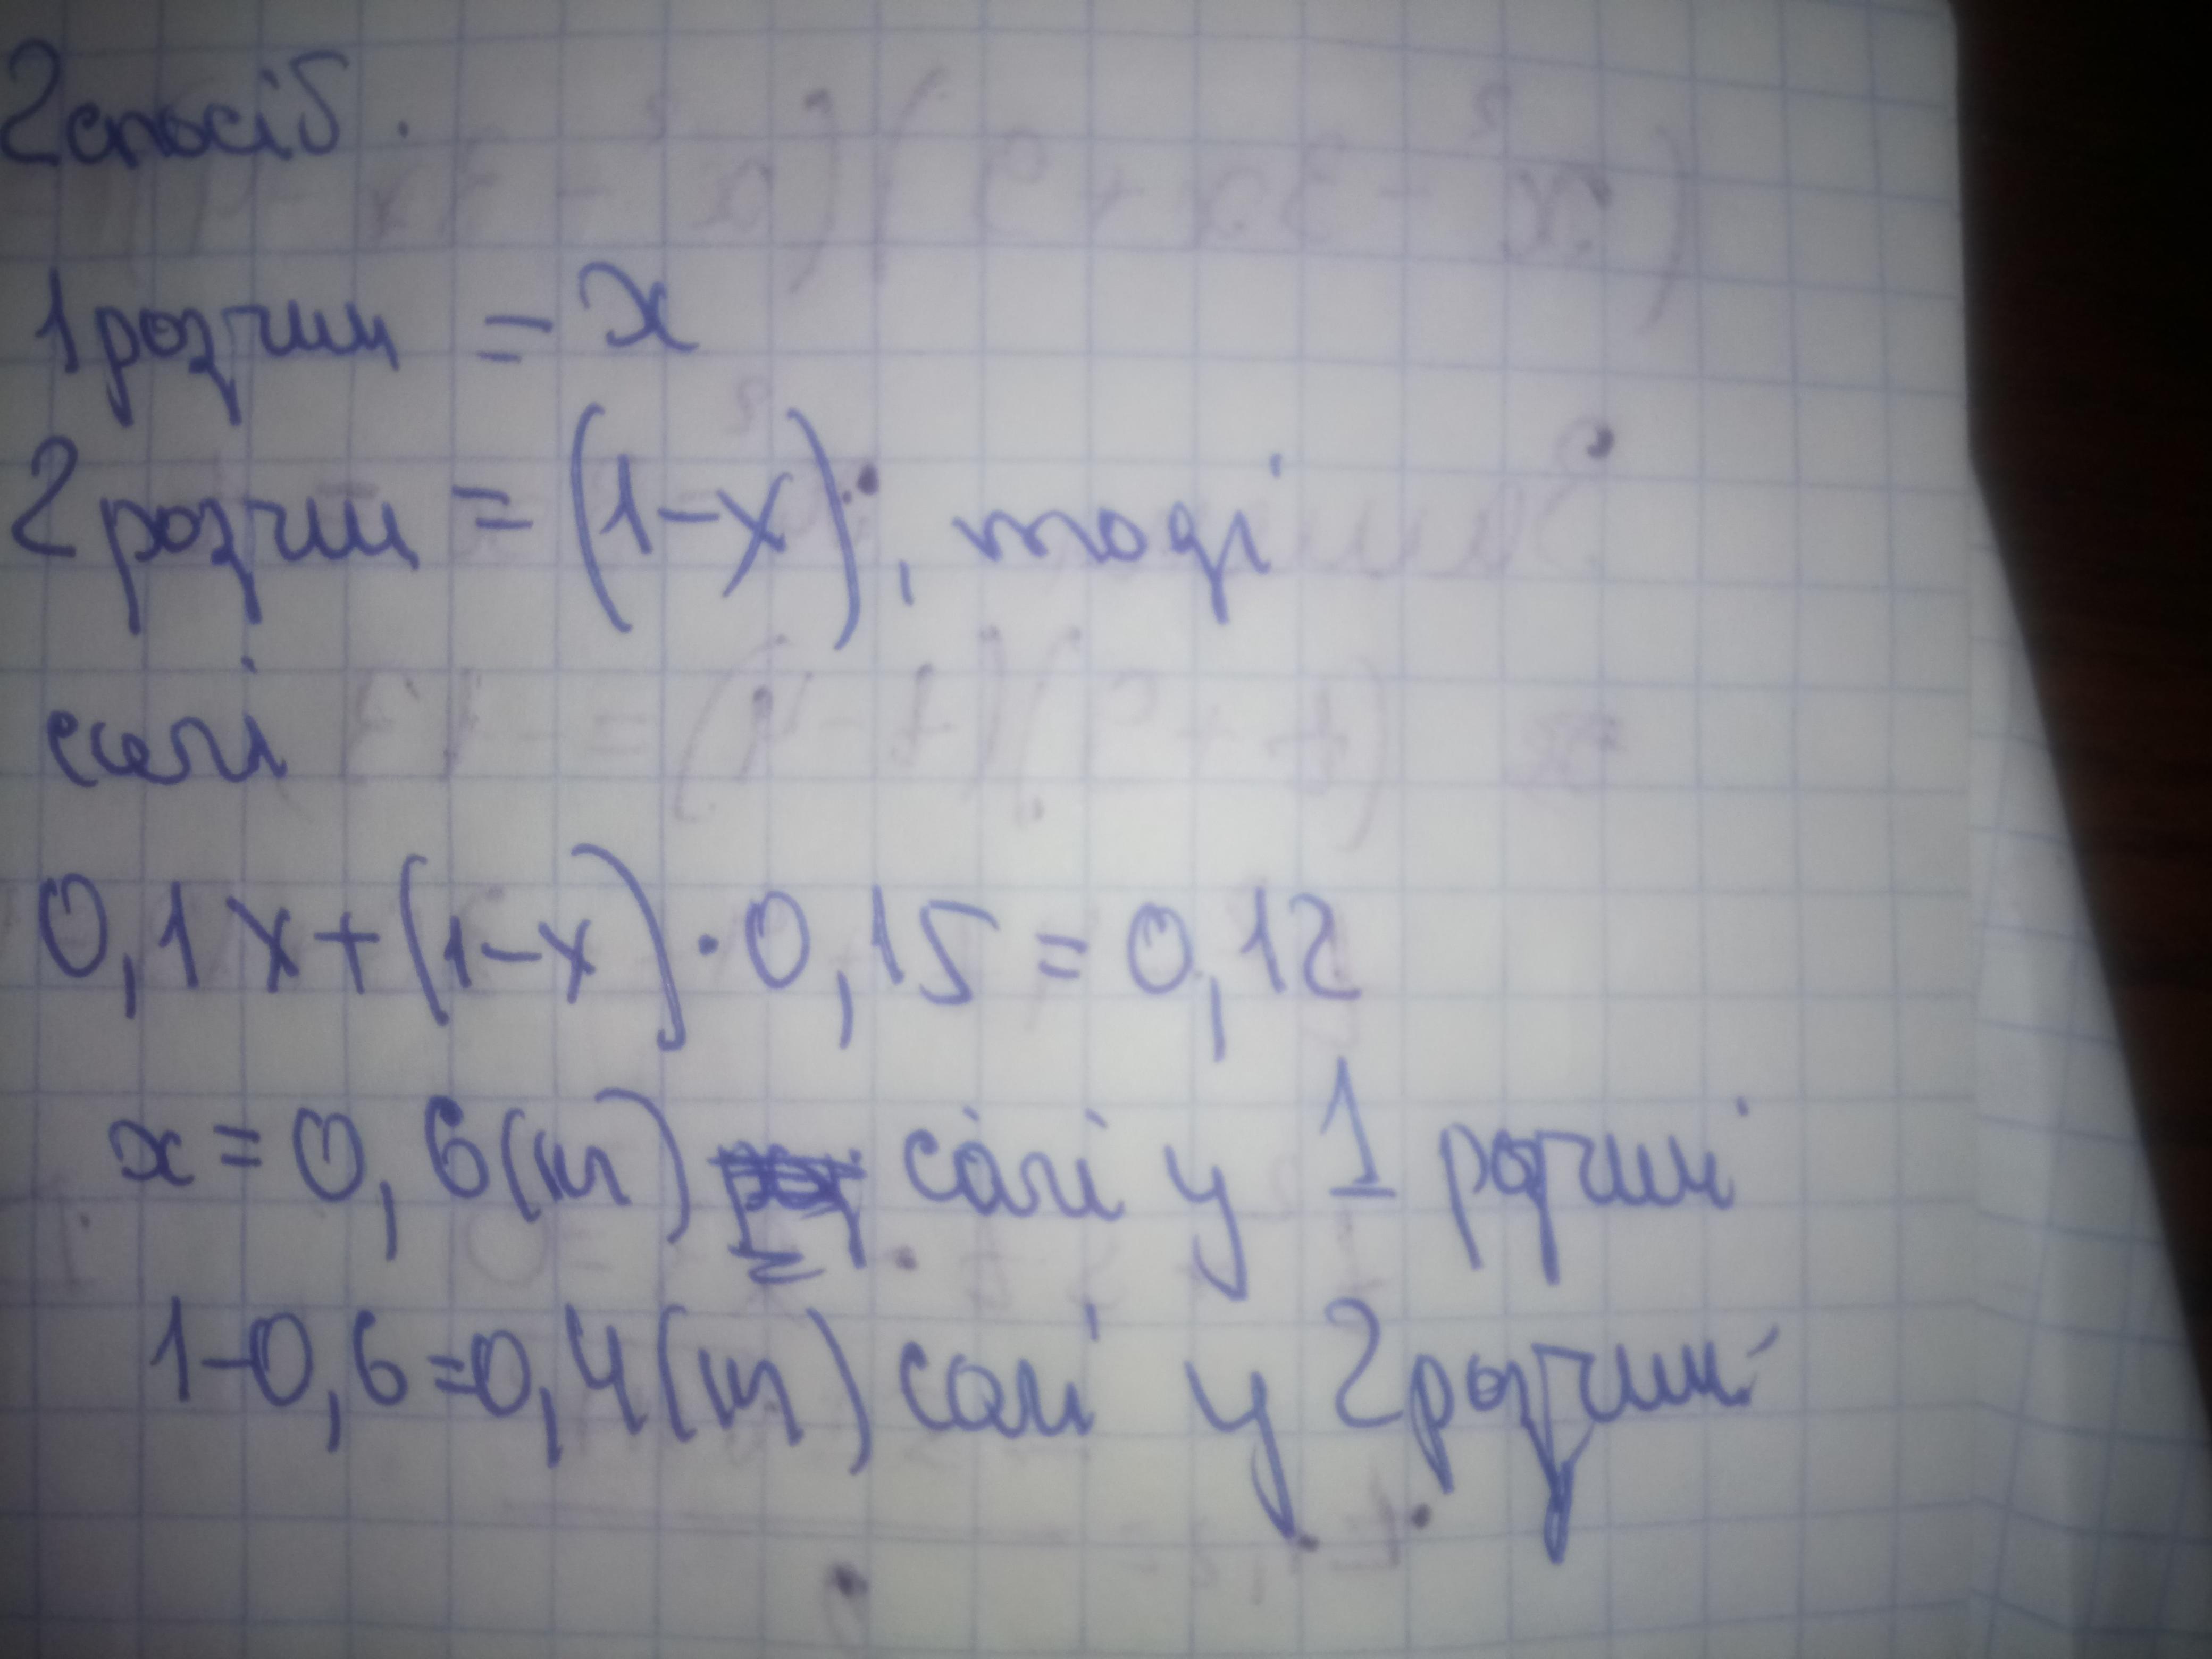 2 спосіб.
1 розчин = x
2 розчин = (1-x), тоді
солі
0,1x+(1-x)·0,15=0,12
x=0,6(т) солі у 1 розчині
1-0,6=0,4(т) солі у 2 розчині